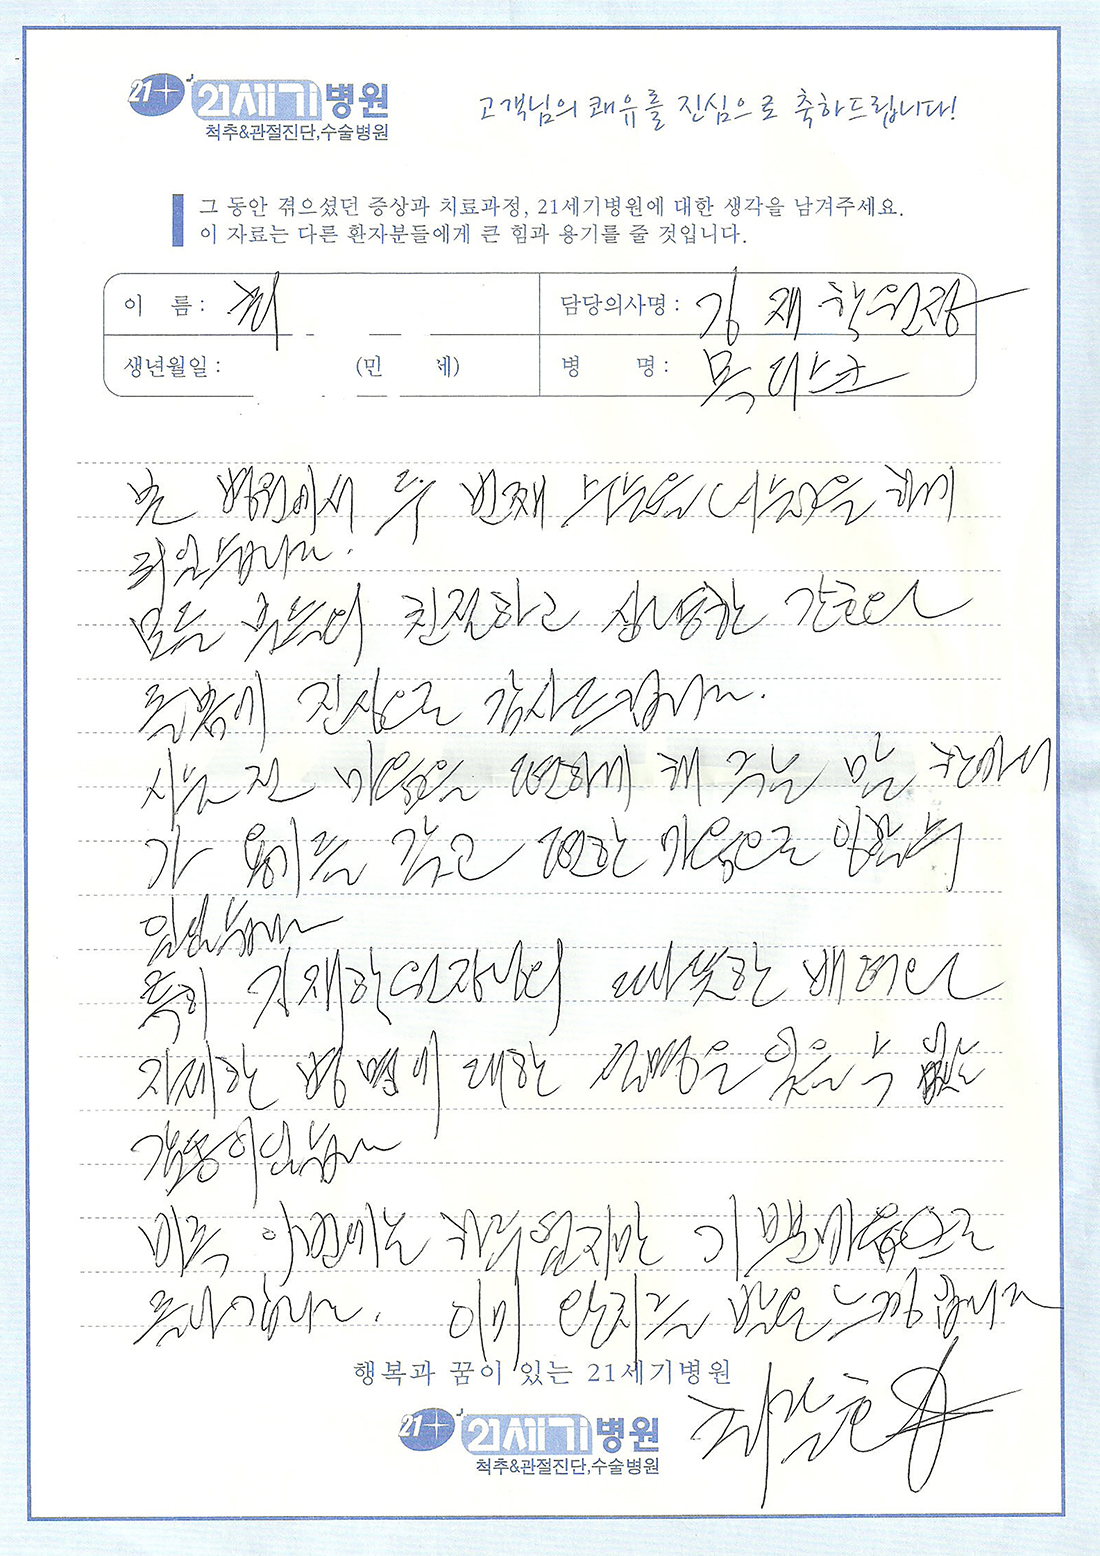 21+ 21세기병원
고객님의 쾌유를 진심으로 축하드립니다!
척추&관절진단,수술병원
그 동안 겪으셨던 증상과 치료과정, 21세기병원에 대한 생각을 남겨주세요.
이 자료는 다른 환자분들에게 큰 힘과 용기를 줄 것입니다.
이 름 : 최 담당의사명 : 김재학원장
생년월일 : (만 세) 병 명 : 목디스크
본 병원에서 두 번째 수술을 하게
되었습니다.
모든 분들이 친절하고 상냥한 간호와
진심으로 감사드립니다.
수술 전 마음을 편하게 해 주는 말 한마디
가 용기를 갖고 편한 마음으로 임할 수
있었습니다
특히 김재학원장님의 따뜻한 배려와
자세한 병명에 대한 설명을 잊을 수 없는
감동이었습니다
비록 하루였지만 기쁜마음으로
이미 완치를 받은 느낌입니다
행복과 꿈이 있는 21세기병원
21+ 21세기병원
척추&관절진단,수술병원